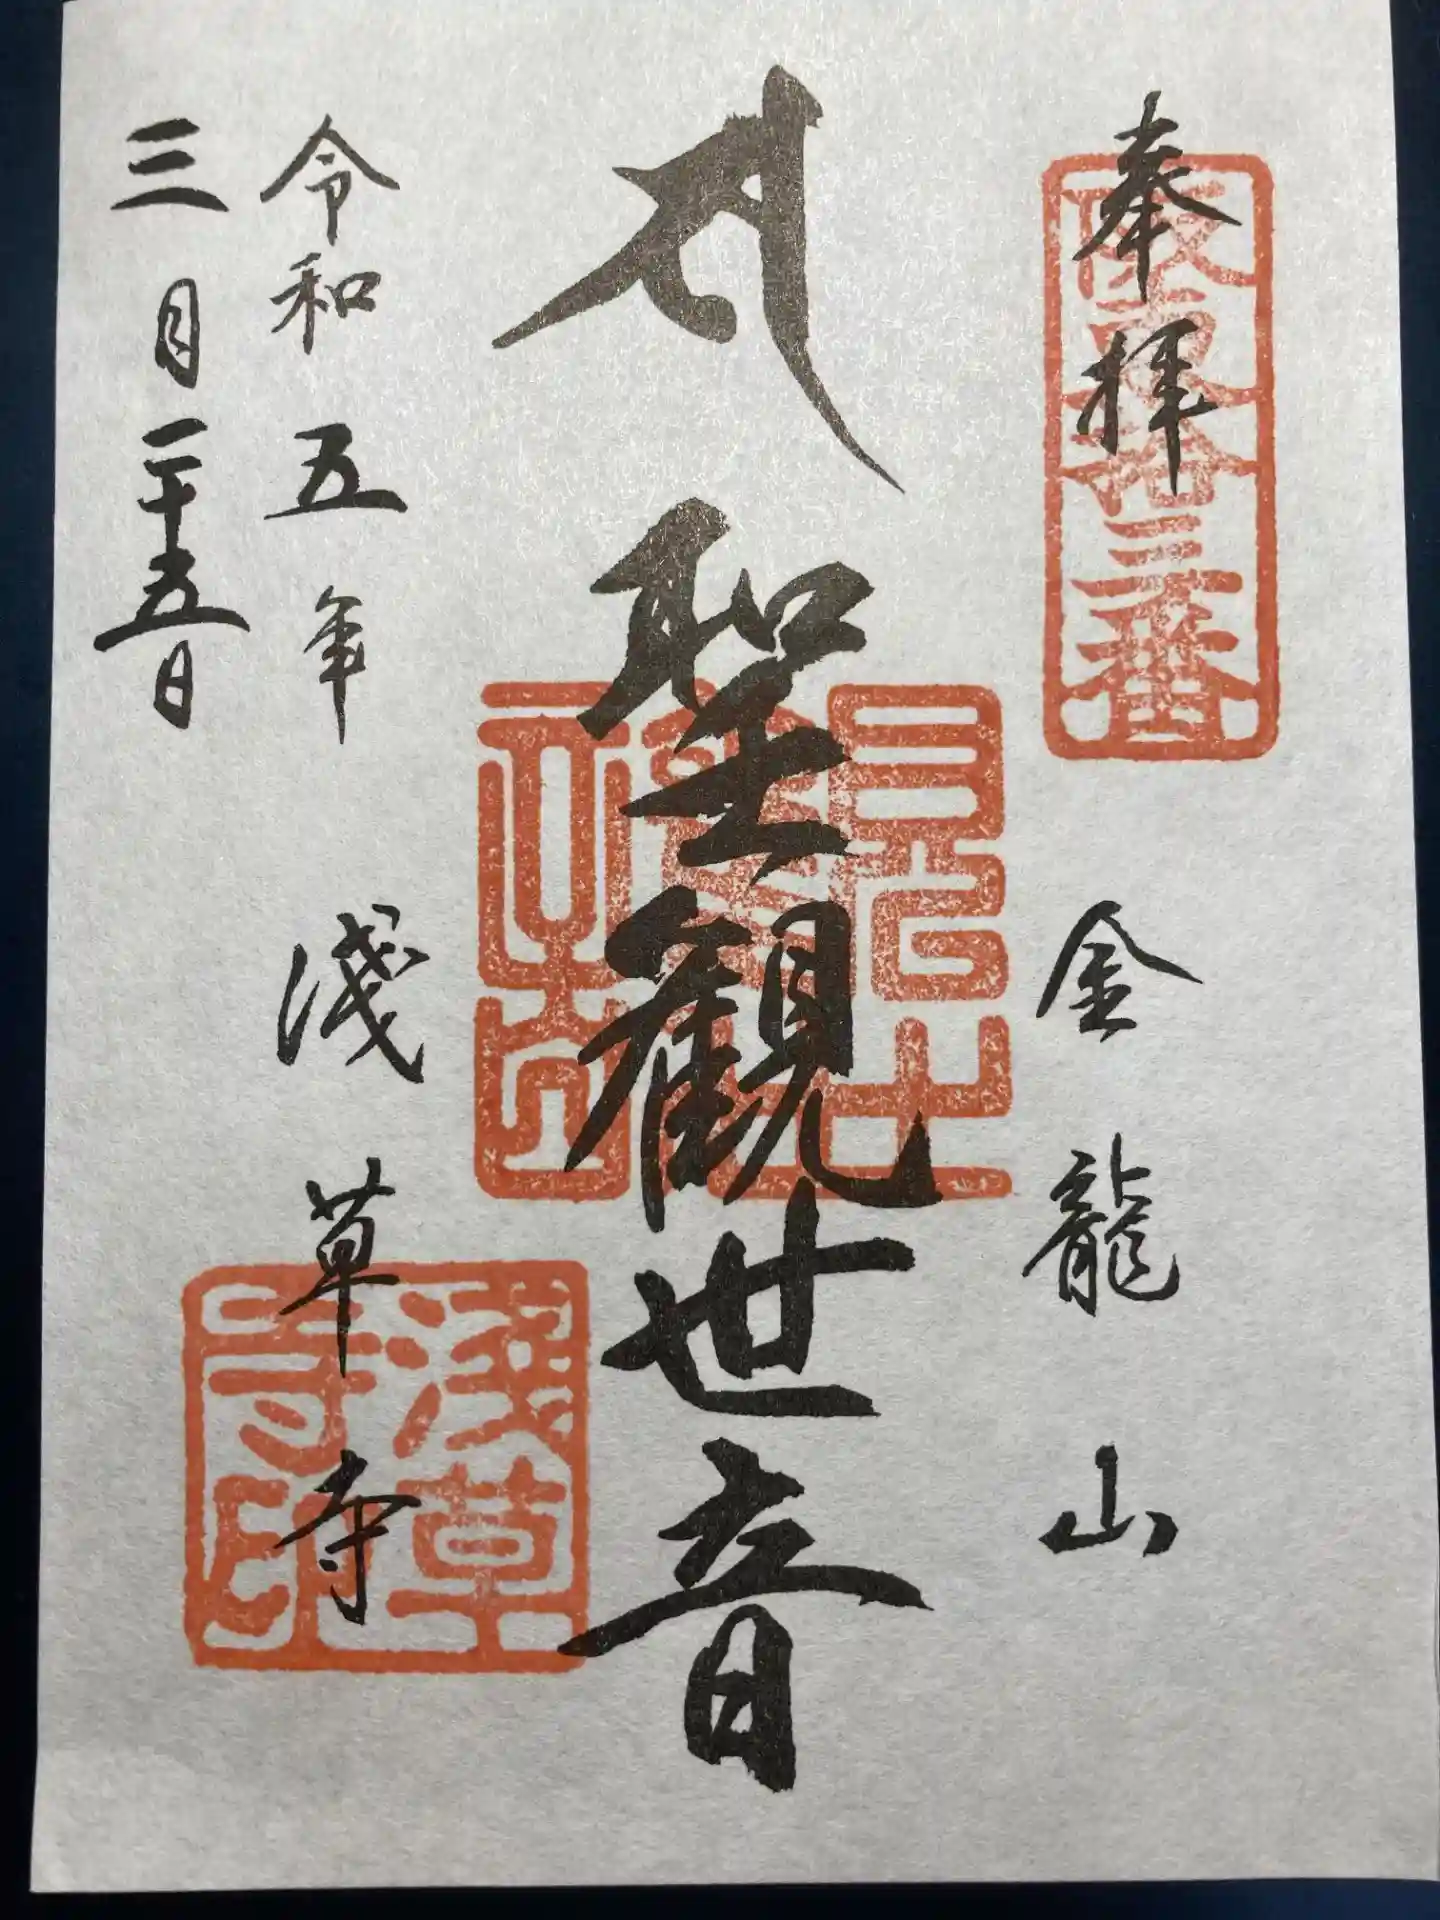 奉拝
坂東拾三番
金龍山
聖観世音
令和五年
淺草寺
三月二十五日
淺草
寺印